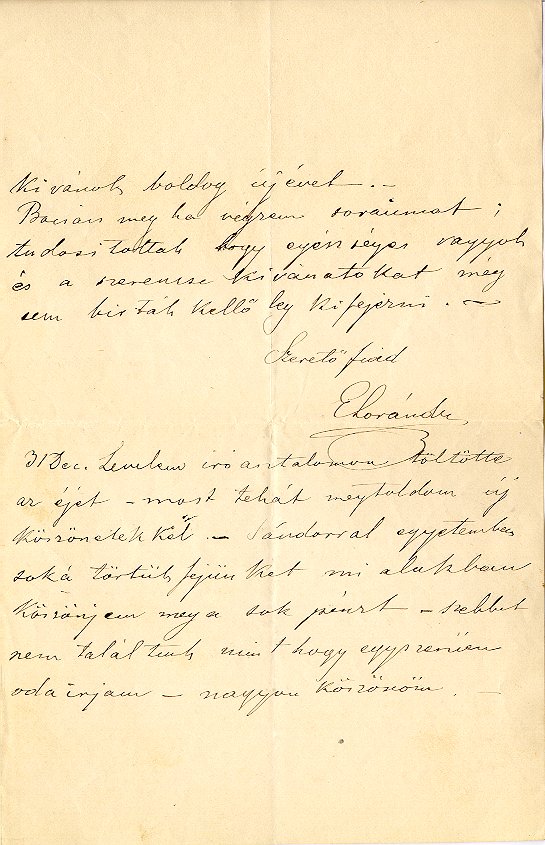 Kivánok boldog újévet. –
Bocsáss meg ha végzem soraimat;
tudósítottak hogy egészséges vagyok
és a szerencse kivánatokat még
sem birták kellőleg kifejezni. –
Szerető fiad
ELoránd
31 Dec. Levelem iróasztalomon töltötte
az éjet – most tehát megtoldom új
köszönetekkel. – Sándorral egyetemben
soká törtük fejünket mi alakban
köszönjem meg a sok pénzt – szebbet
nem találtunk mint hogy egyszerüen
oda irjam – nagyon köszönöm. –